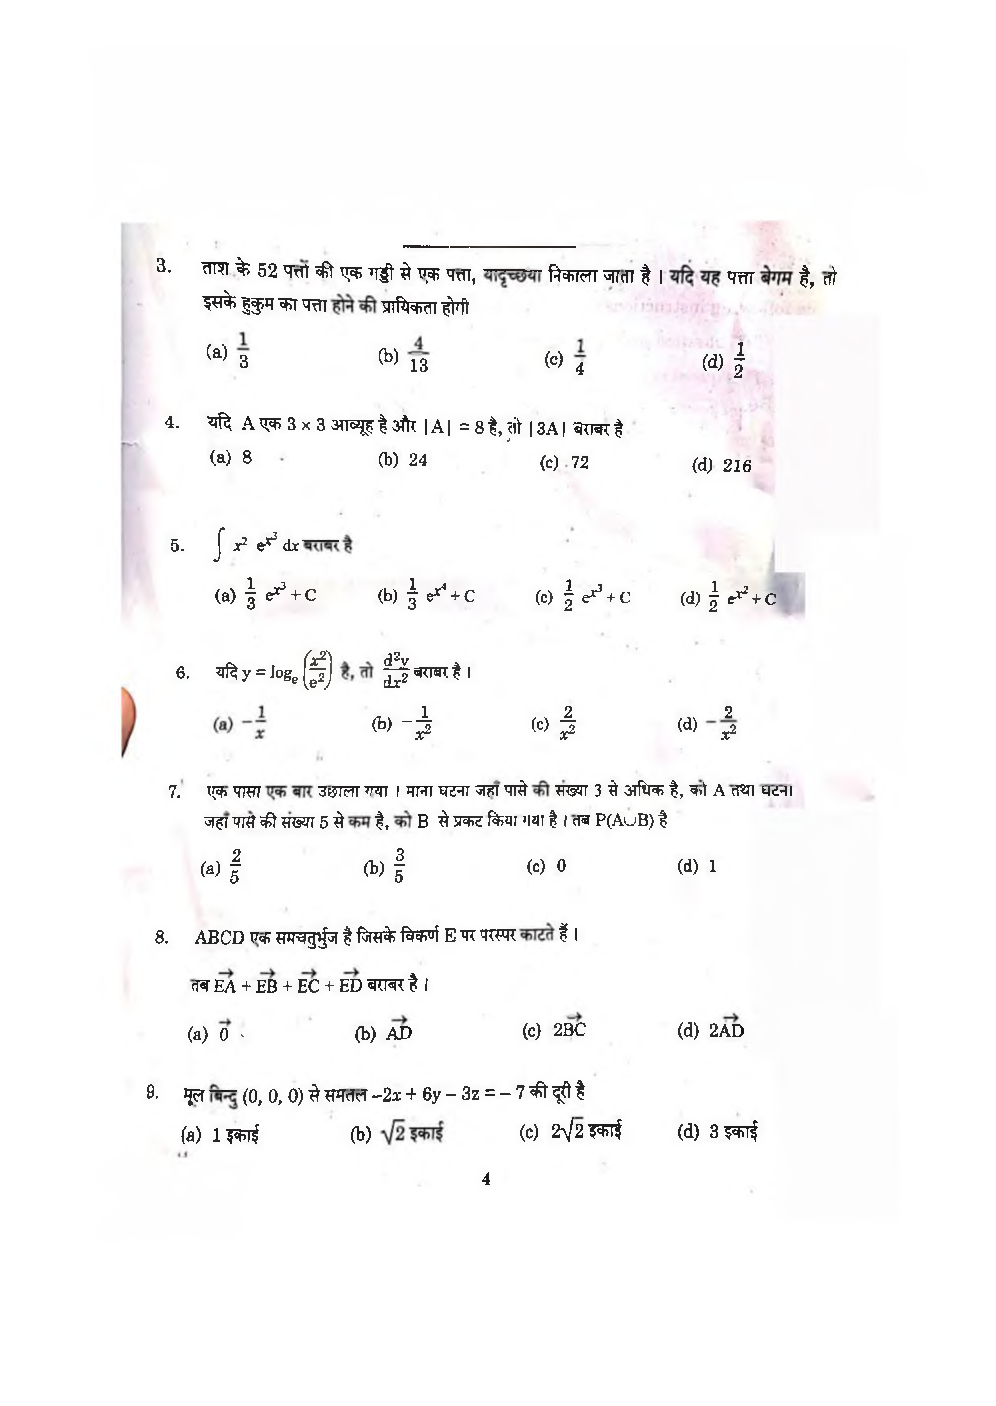 3. ताश के 52 पत्तों की एक गड्डी से एक पत्ता, यादृच्छया निकाला जाता है । यदि यह पत्ता बेगम है, तो
इसके हुकुम का पत्ता होने की प्रायिकता होगी
(a) 1/3 (b) 4/13 (c) 1/4 (d) 1/2
4. यदि A एक 3 × 3 आव्यूह है और |A| = 8 है, तो |3A| बराबर है
(a) 8 (b) 24 (c) 72 (d) 216
5. ∫ x² e^x³ dx बराबर है
(a) 1/3 e^x³ + C (b) 1/3 e^x⁴ + C (c) 1/2 e^x³ + C (d) 1/2 e^x² + C
6. यदि y = logₑ (x²/e²) है, तो d²y/dx² बराबर है ।
(a) –1/x (b) –1/x² (c) 2/x² (d) –2/x²
7. एक पासा एक बार उछाला गया । माना घटना जहाँ पासे की संख्या 3 से अधिक है, को A तथा घटना
जहाँ पासे की संख्या 5 से कम है, को B से प्रकट किया गया है । तब P(A∪B) है
(a) 2/5 (b) 3/5 (c) 0 (d) 1
8. ABCD एक समचतुर्भुज है जिसके विकर्ण E पर परस्पर काटते हैं ।
तब EA→ + EB→ + EC→ + ED→ बराबर है ।
(a) 0→ (b) AD→ (c) 2BC→ (d) 2AD→
9. मूल बिन्दु (0, 0, 0) से समतल –2x + 6y – 3z = – 7 की दूरी है
(a) 1 इकाई (b) √2 इकाई (c) 2√2 इकाई (d) 3 इकाई
4